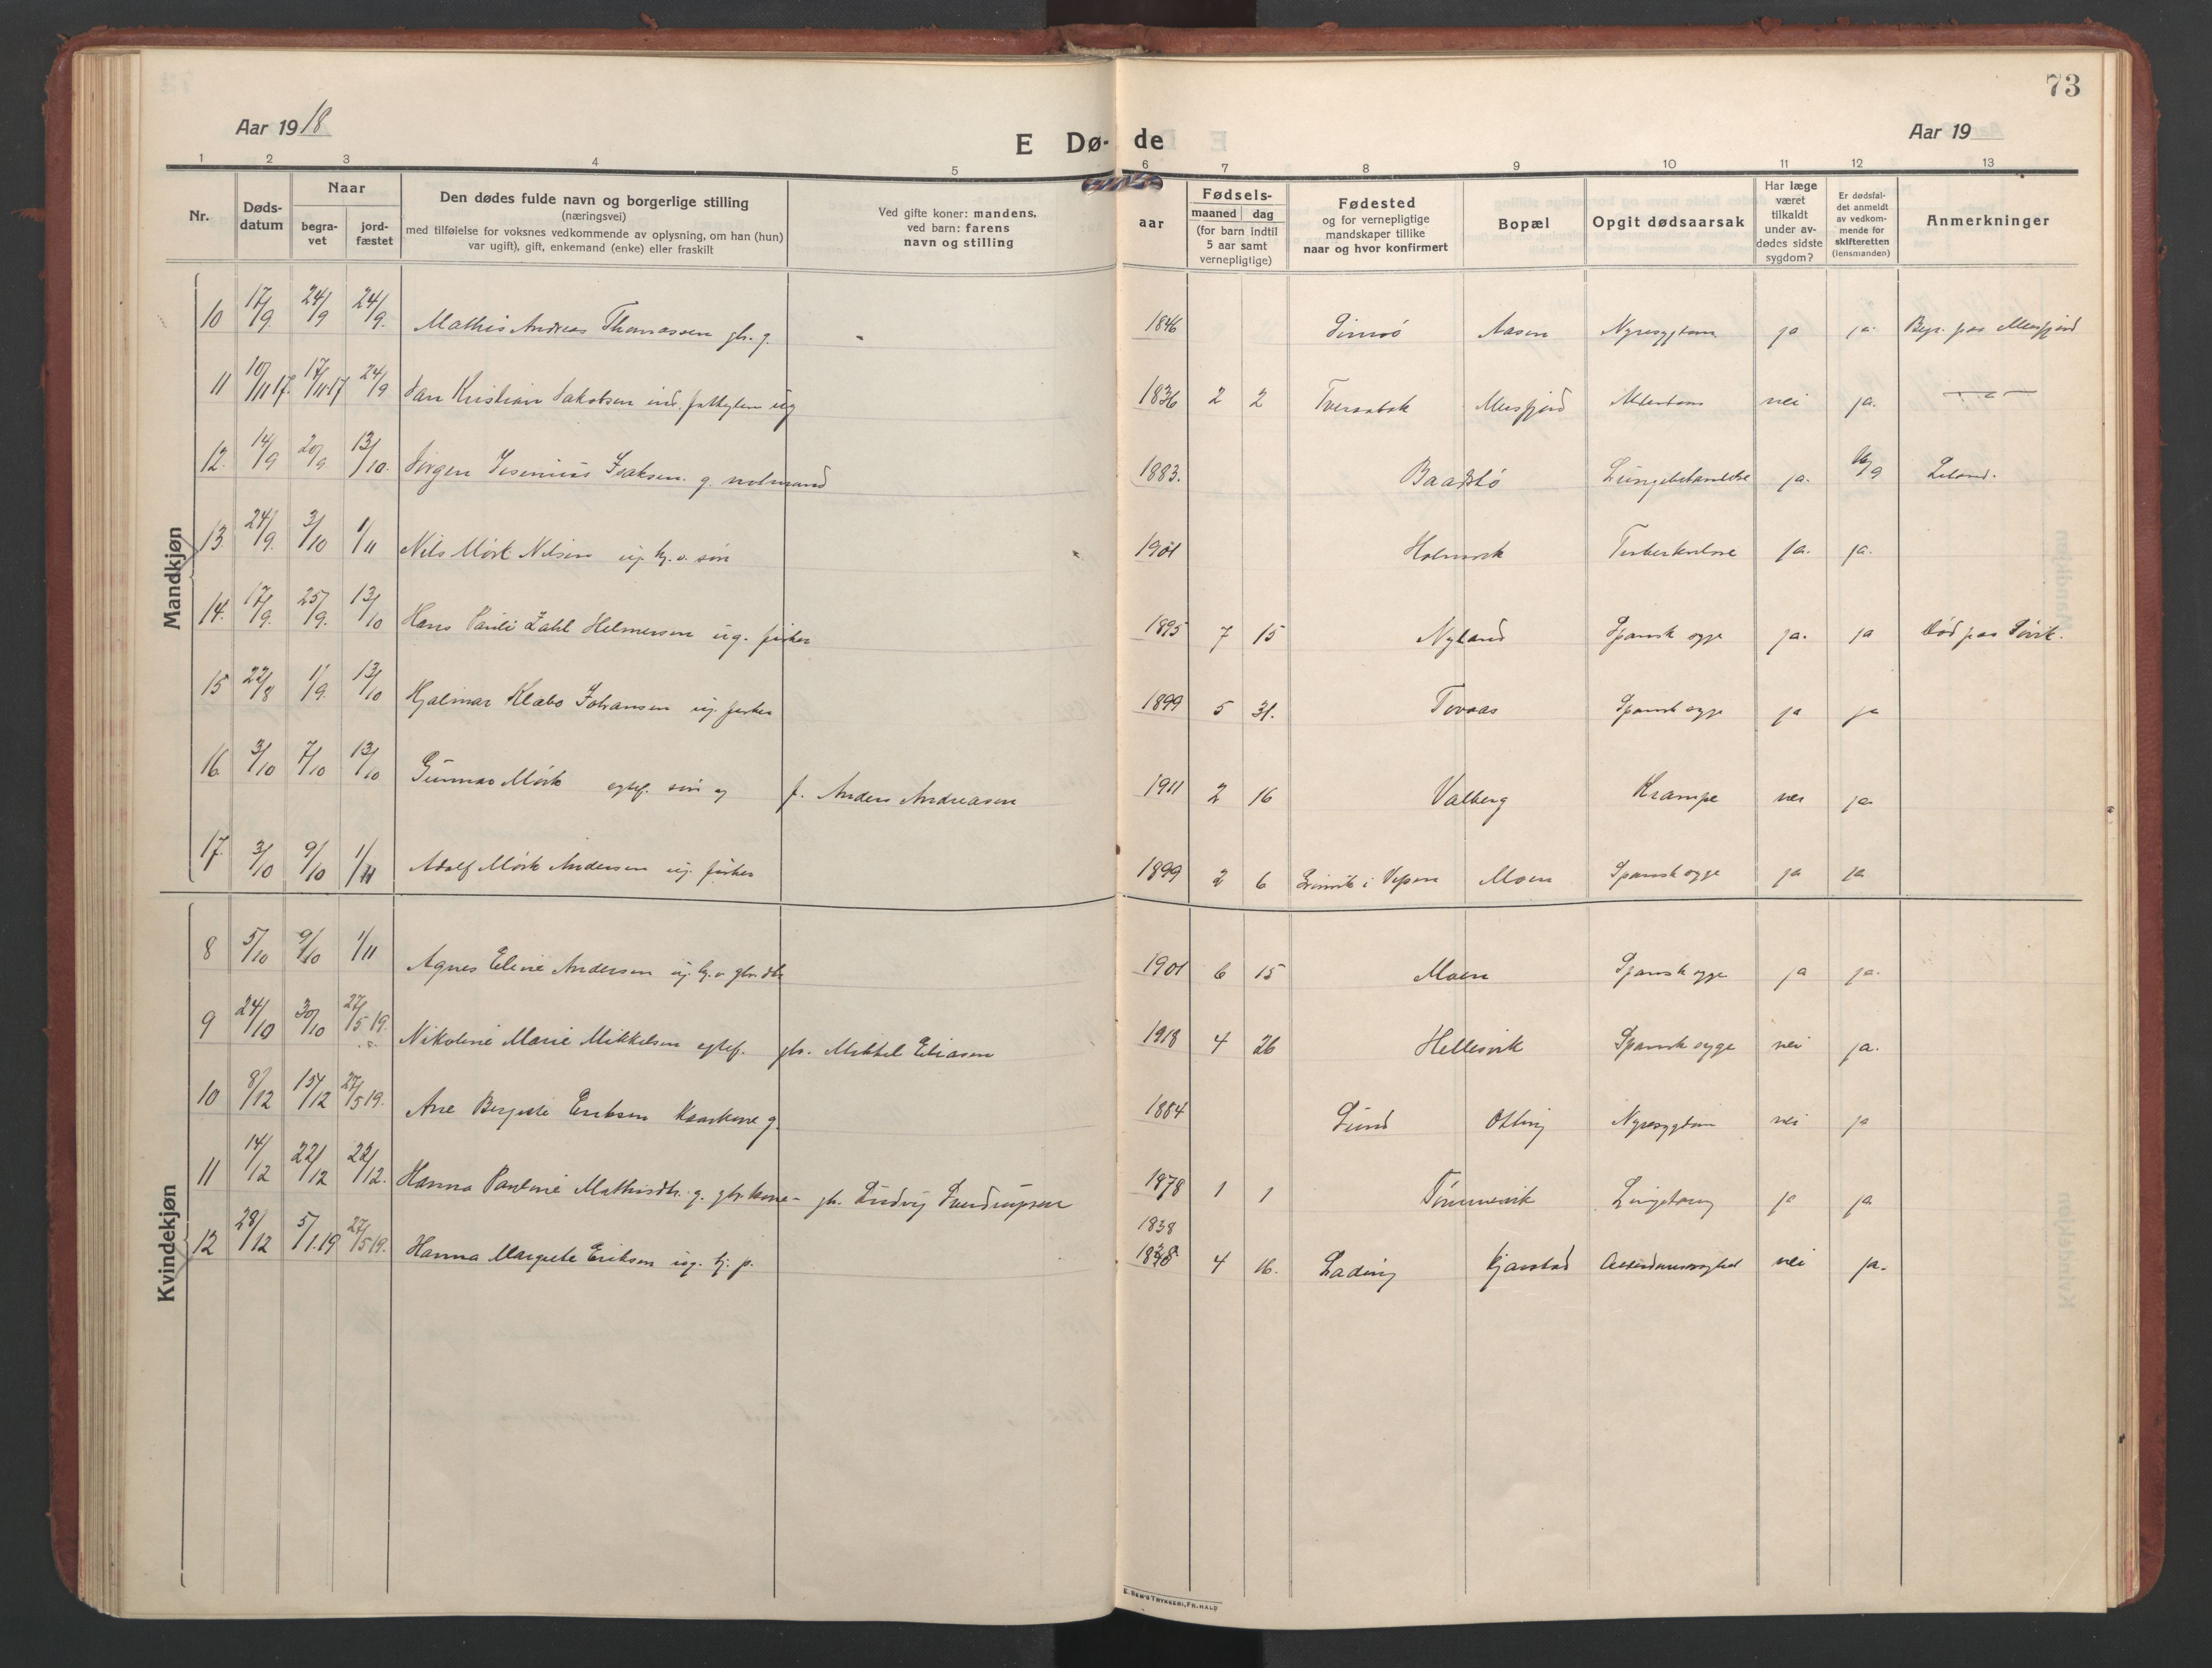 73
Aar 1918
E Dø- de
Aar 19
1 2 3 4 5 6 7 8 9 10 11 12 13
Nr.
Døds-
datum
Naar
begra-
vet
jord-
fæstet
Den dødes fulde navn og borgerlige stilling
(næringsvei)
med tilføielse for voksnes vedkommende av oplysning, om han (hun)
var ugift), gift, enkemand (enke) eller fraskilt
Ved gifte koner: mandens,
ved barn: farens
navn og stilling
aar
Fødsels-
maaned dag
(for barn indtil
5 aar samt
vernepligtige)
Fødested
og for vernepligtige
mandskaper tillike
naar og hvor konfirmert
Bopæl
Opgit dødsaarsak
Har læge
været
tilkaldt
under av-
dødes sidste
sygdom?
Er dødsfal-
det anmeldt
av vedkom-
mende for
skifteretten
(lensmanden)
Anmerkninger
Mandkjøn
10 17/9 24/9 24/9. Mathis Andreas Thomassen gbr. g. 1846 Aasen Nyresygdom ja ja. Begr. paa Meisfjord
11 10/11 17. 17/11-17 24/9 Jan Kristian Jakobsen ind. ug 1836 2 2 Meisfjord Alderdom nei ja. — " —
12. 14/9 20/9 13/10. Jørgen Isaksen. g. 1883. ja. 16/9 Leland.
13. 24/9. 3/10 1/11 Nils Mørk Nilsen ug. søn 1901 Holmvik Tuberkulose ja. ja.
14. 17/9. 25/9. 13/10 Hans Zahl Helmersen ug. fisker 1895 7 15 Nyland Spansk syge ja. ja Død paa Søvik.
15 22/8 1/9. 13/10 Hjalmar Klæbo Johansen ug. fisker 1899 5 31. Tovaas Spansk syge ja ja
16. 3/10 7/10 13/10 Gunnar Mørk egtef. søn f. Anders Andreasen 1911 2 16 Valberg Krampe nei ja
17. 3/10 9/10 1/11 Adolf Mørk Andersen ug. fisker 1899 2 6 i Vefsen Moen Spansk syge ja ja
Kvindekjøn
8 5/10 9/10 1/11 Agnes Eline Andersen ug. 1901 6 15 Moen Spansk syge ja ja.
9 24/10 30/10 27/5 19. Nikoline Marie Mikkelsen egtef. gbr. Mikkel Eliasen 1918 4 26 Hellesvik Spansk syge nei ja.
10 8/12 15/12 27/5 19. Ane Eriksen g. 1884 Lund Olting Nyresygdom nei ja
11 14/12 22/12 22/12. Hanna Pauline Mathisdtr. g. gbr. kone - gbr. Ludvig 1978 1 1 Tømmervik ja ja
12 28/12 5/1.19 27/5 19. Hanna Margrete Eriksen ug. 1838 4 16. Lading Kjærstad nei ja.
1838
E. SEM'S TRYKKERI, FR.HALD